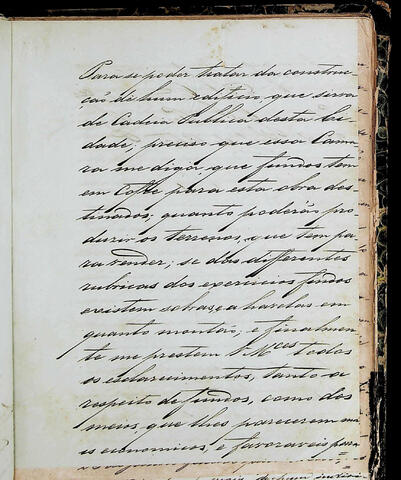 Para se poder tratar da construc-
ção de hum edificio, que sirva
de Cadeia Publica desta Ci
dade; preciso que essa Cama
ra me diga que fundos tem
em Cofre para esta obra des
tinados; quanto poderáõ pro
duzir os terrenos, que tem pa
ra vender; se das differentes
rubricas dos exercicios findos
existem sobras, e a havelas em
quanto montaõ; e finalmen
te me prestem V.Mces todos
os esclarecimentos, tanto a
respeito de fundos, como dos
meios, que lhes parecerem ma
is economicos, e favoraveis para